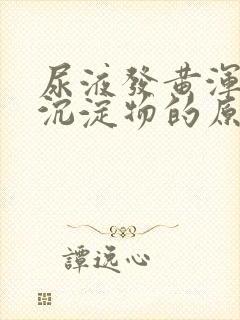 尿液發黃渾
沉淀物的原
譚逸心